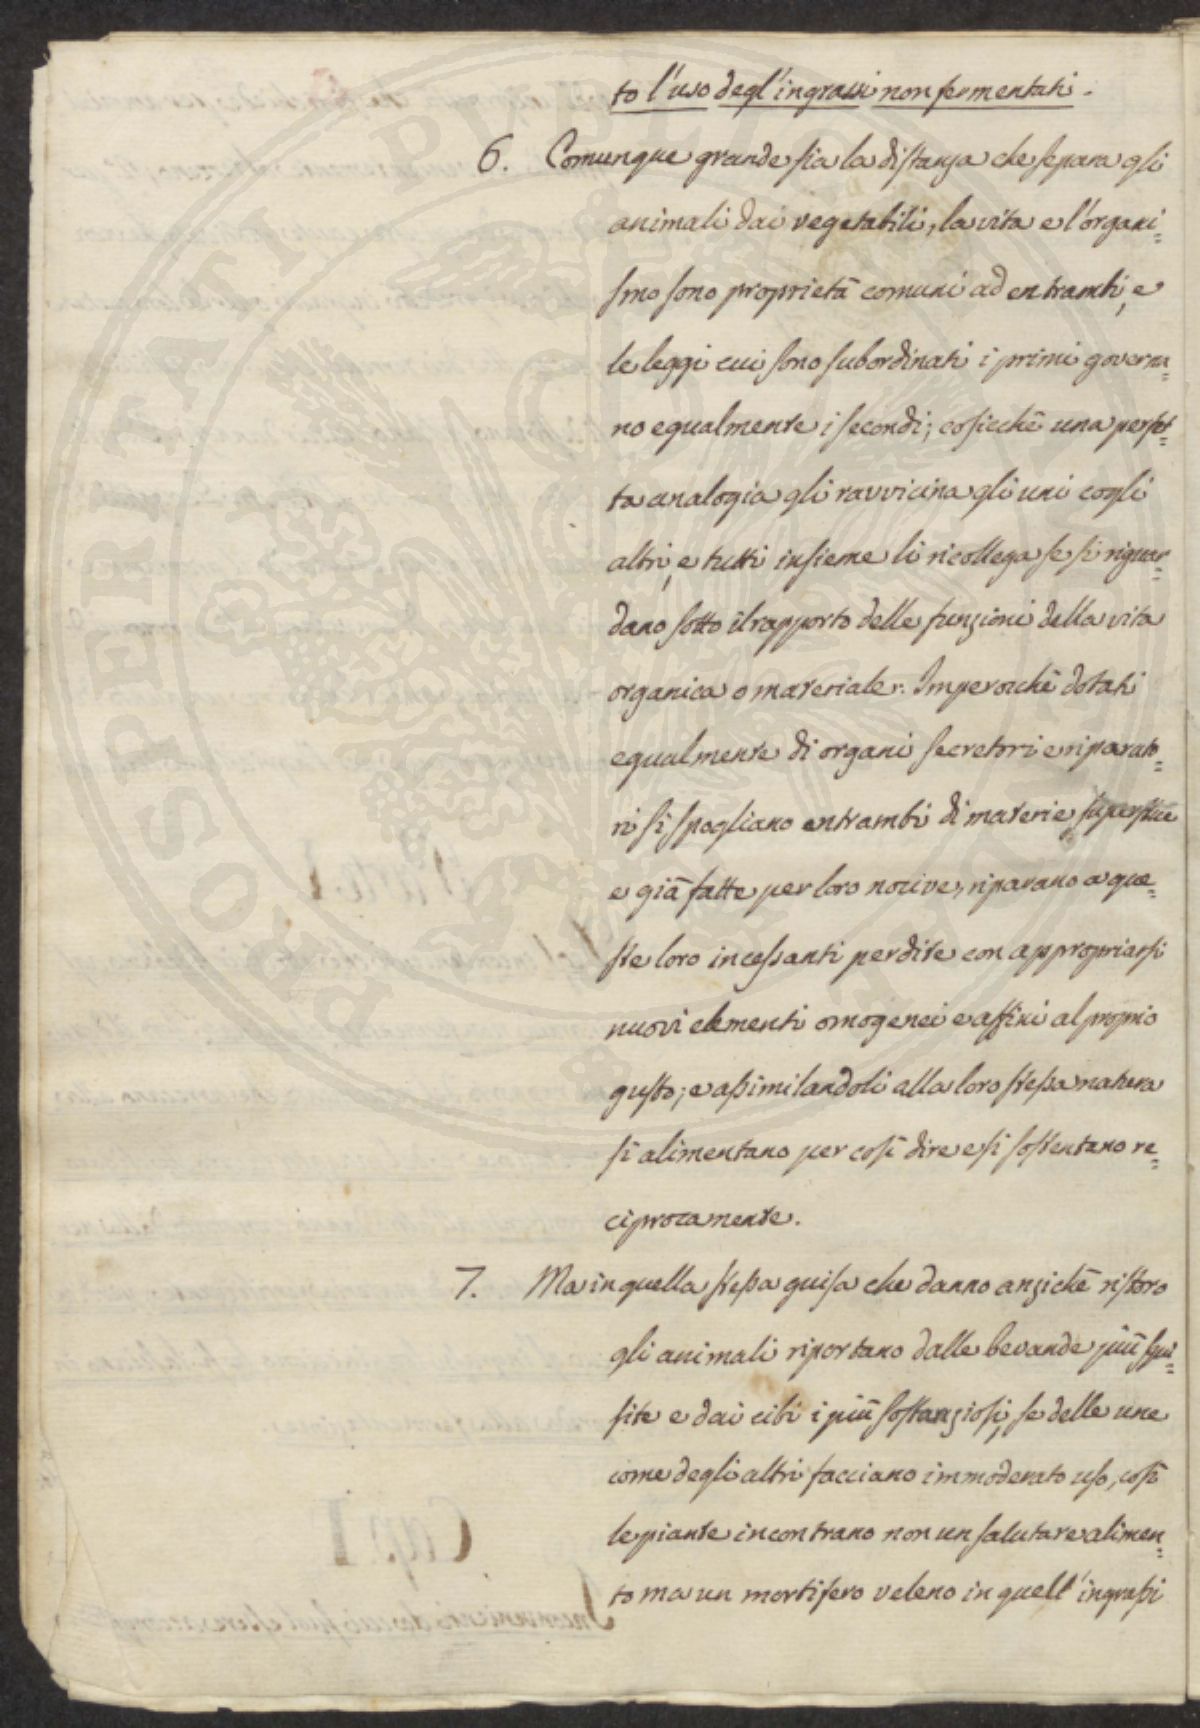 to l'uso degl'ingrassi non fermentati.
6. Comunque grande sia la distanza che separa gli
animali dai vegetabili, la vita e l'organi=
smo sono proprietà comuni ad entrambi, e
le leggi cui sono subordinati i primi governa=
no egualmente i secondi; cosicchè una perfet=
ta analogia gli ravvicina gli uni cogli
altri, e tutti insieme li ricollega se si riguar=
dano sotto il rapporto delle funzioni della vita
organica o materiale. Imperocchè dotati
egualmente di organi secretori e riparato=
ri si spogliano entrambi di materie superflue
e già fatte per loro nocive, riparano a que=
ste loro incessanti perdite con appropriarsi
nuovi elementi omogenei e affini al proprio
gusto; e assimilandoli alla loro stessa natura
si alimentano per così dire e si sostentano re=
ciprocamente.
7. Ma in quella stessa guisa che danno anzichè ristoro
gli animali riportano dalle bevande più squi=
site e dai cibi i più sostanziosi, se delle une
come degli altri facciano immoderato uso, così
le piante incontrano non un salutare alimen=
to ma un mortifero veleno in quell'ingrassi
PROSPERITATI PUBLICAE